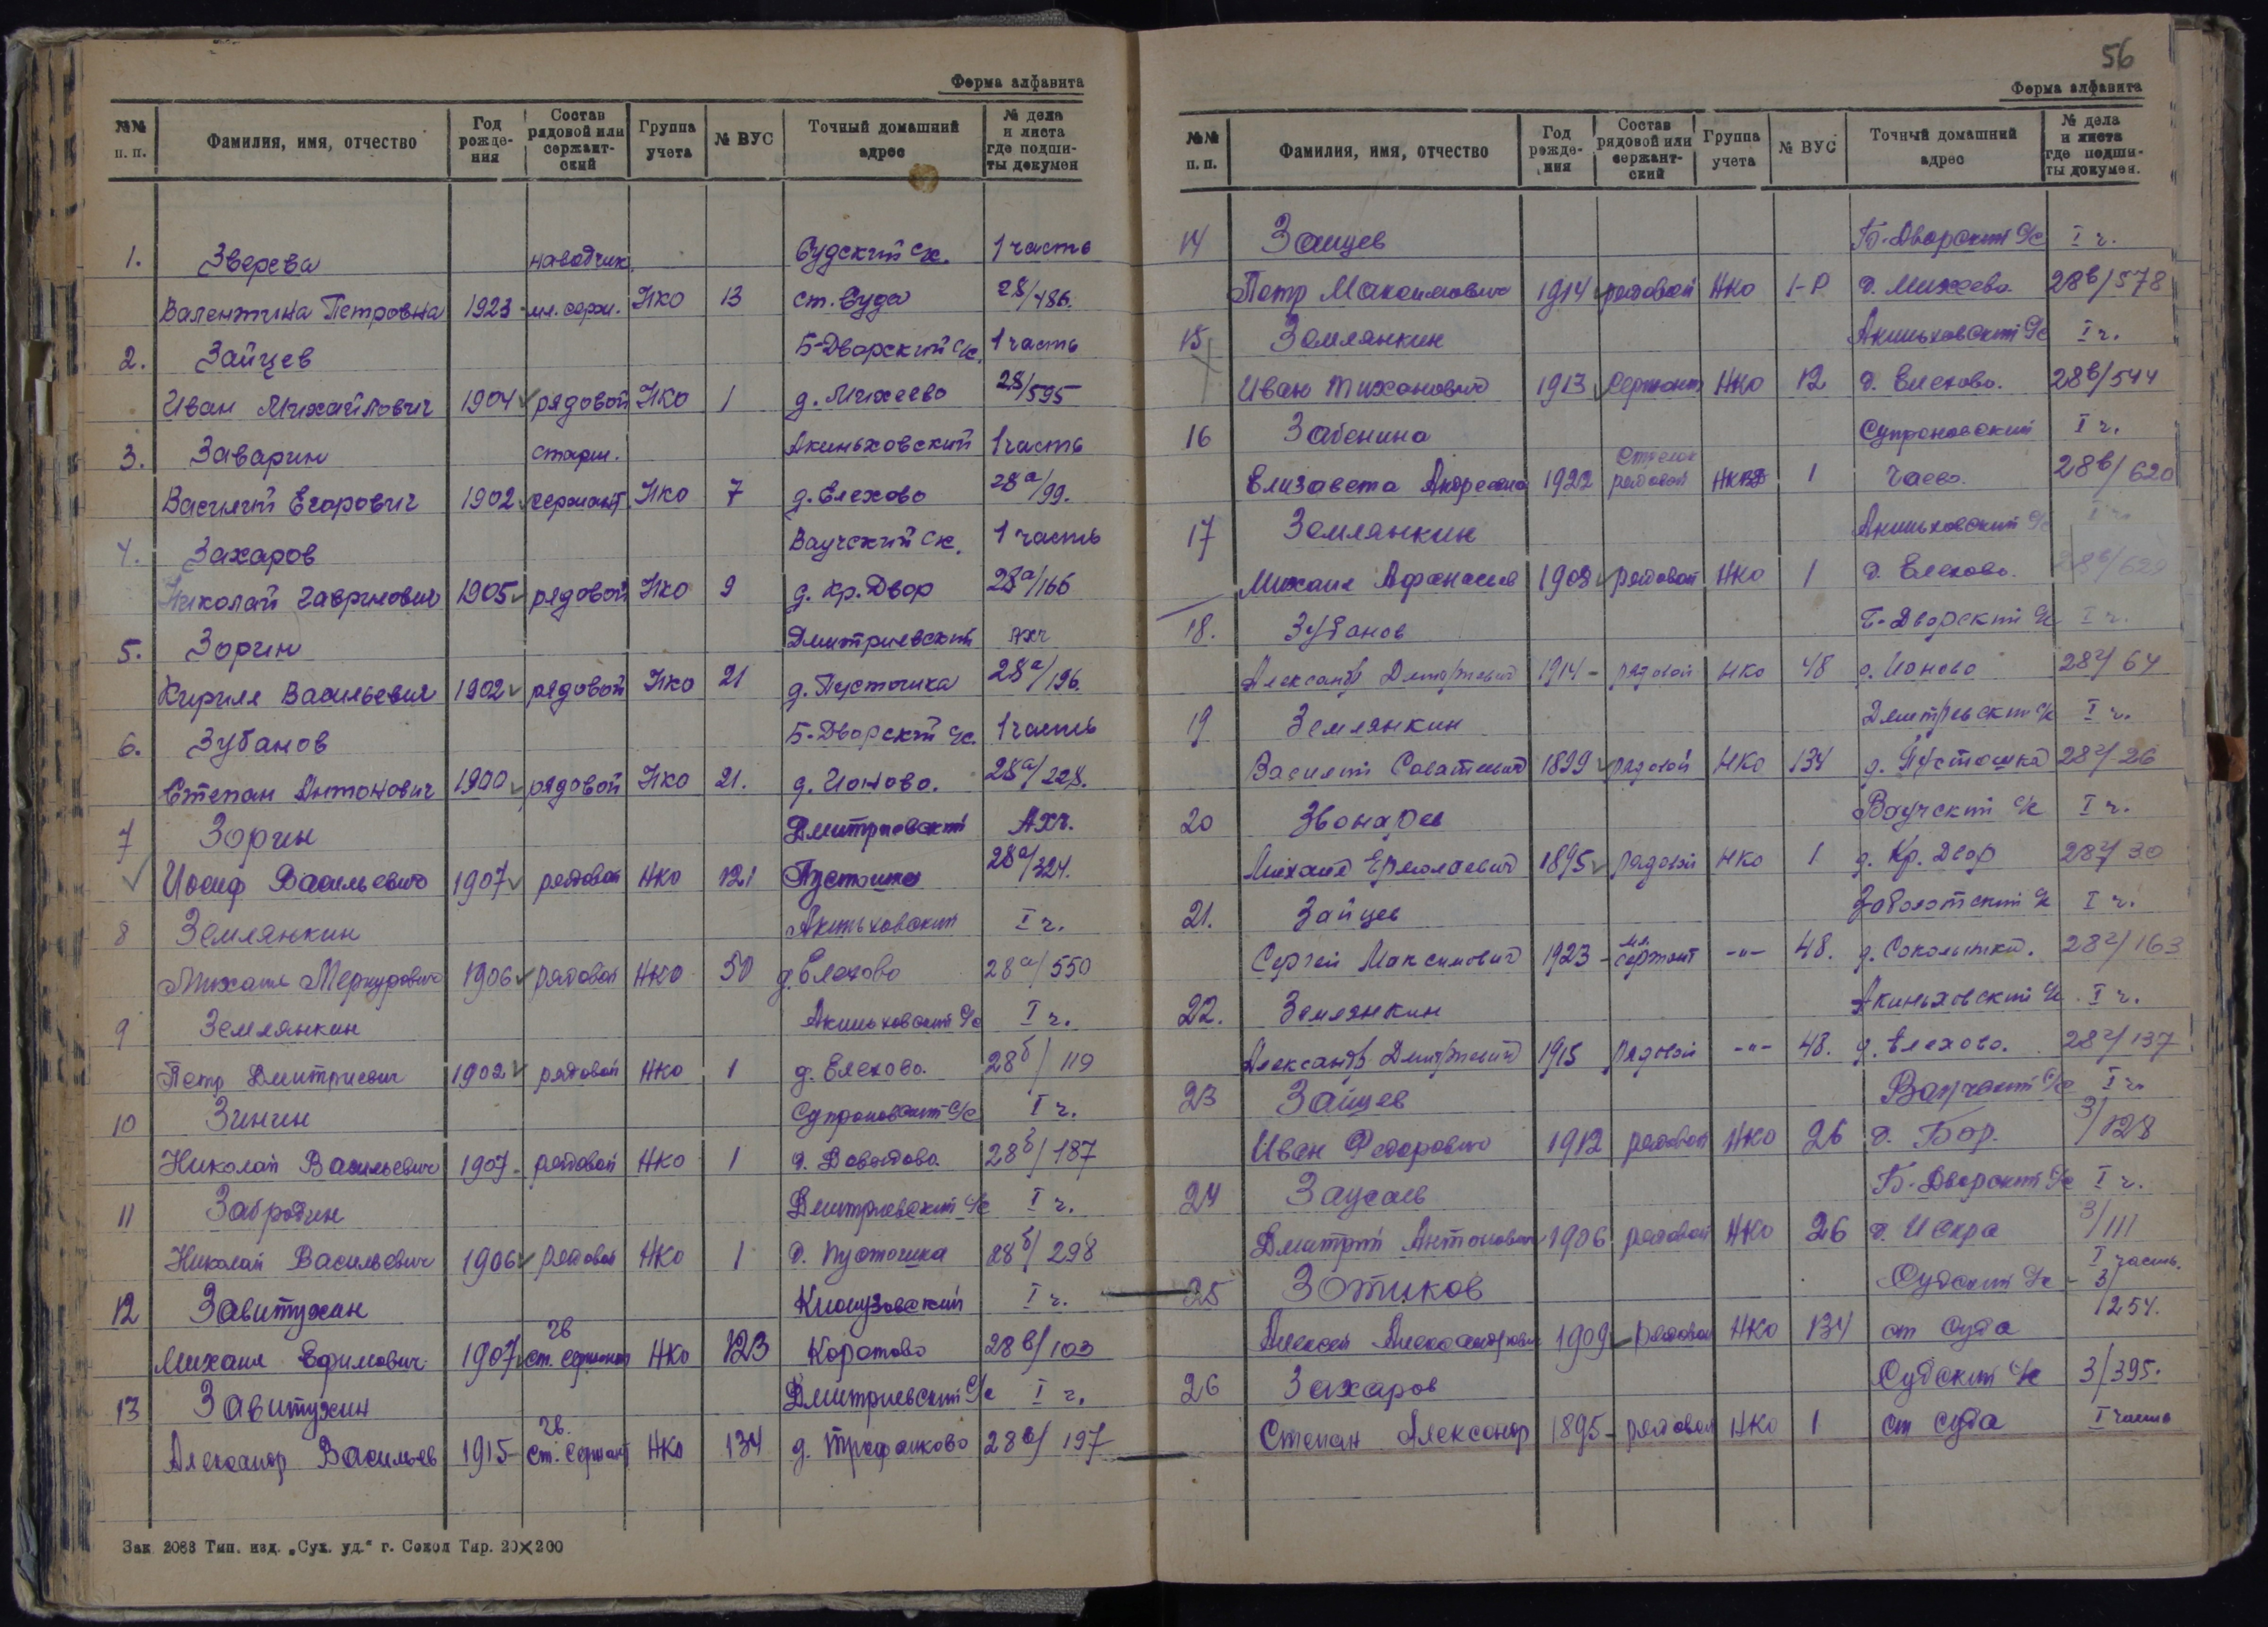 Форма алфавита
№№ п. п. Фамилия, имя, отчество Год рождения Состав рядовой или сержантский Группа учета № ВУС Точный домашний адрес № дела и листа где подшиты докумен
1. Зверева наводчик Судский с/с. 1 часть
Валентина Петровна 1923 - мл. серж. НКО 13 ст. Суда 28/486.
2. Зайцев Б-Дворский с/с. 1 часть
Иван Михайлович 1904 рядовой НКО 1 д. Михеево 28/595
3. Заварин старш. Акиньховский 1 часть
Василий Егорович 1902 сержант НКО 7 д. Елехово 28а/99.
4. Захаров Ваучский с/с. 1 часть
Николай Гаврилович 1905 рядовой НКО 9 д. Кр. Двор 28а/166
5. Зорин Дмитриевский АХЧ
Кирилл Васильевич 1902 рядовой НКО 21 д. Пустошка 28а/196.
6. Зубанов Б-Дворский с/с. 1 часть
Степан Антонович 1900 рядовой НКО 21. д. Ионово. 28а/228.
7 Зорин Дмитриевский АХЧ.
Иосиф Васильевич 1907 рядовой НКО 121 Пустошка 28а/324.
8 Землянкин Акиньховский I ч.
Михаил Меркурович 1906 рядовой НКО 50 д. Елехово 28а/550
9 Землянкин Акиньховский с/с I ч.
Петр Дмитриевич 1902 рядовой НКО 1 д. Елехово. 28б/119
10 Зинин Супроновский с/с I ч.
Николай Васильевич 1907 - рядовой НКО 1 д. Давыдово. 28б/187
11 Забродин Дмитриевский с/с I ч.
Николай Васильевич 1906 рядовой НКО 1 д. Пустошка 28б/298
12 Завитухин I ч.
Михаил Ефимович 1907 гв ст. сержант НКО 123 Коротово 28в/103
13 Завитухин Дмитриевский с/с I ч.
Александр Васильев 1915 - гв. ст. сержант НКО 134 д. Трофанково 28в/197
Зак 2088 Тип. изд. „Сух. уд.“ г. Сокол Тир. 20×200
56
Форма алфавита
№№ п. п. Фамилия, имя, отчество Год рождения Состав рядовой или сержантский Группа учета № ВУС Точный домашний адрес № дела и листа где подшиты докумен.
14 Зайцев Б-Дворский с/с I ч.
Петр Максимович 1914 рядовой НКО 1-Р д. Михеево. 28в/578
15 Землянкин Акиньховский с/с I ч.
Иван Тиханович 1913 сержант НКО 12 д. Елехово. 28в/544
16 Забенина Супроновский I ч.
Елизавета Андреевна 1922 стрелок рядовой НКВД 1 Чаево. 28в/620
17 Землянкин Акиньховский с/с I ч.
Михаил Афанасьев 1908 рядовой НКО 1 д. Елехово. 28в/629
18. Зубанов Б-Дворский с/с I ч.
Александр Дмитриевич 1914 - рядовой НКО 48 д. Ионово 28г/64
19 Землянкин Дмитриевский с/с I ч.
Василий Саватеевич 1899 рядовой НКО 134 д. Пустошка 28г/26
20 Звонарев Ваучский с/с I ч.
Михаил Ермолаевич 1895 рядовой НКО 1 д. Кр. Двор 28г/30
21. Зайцев Заболотский с/с I ч.
Сергей Максимович 1923 - мл. сержант -"- 48. д. Сокольники. 28г/163
22. Землянкин Акиньховский с/с. I ч.
Александр Дмитриевич 1915 рядовой -"- 48. д. Елехово. 28г/137
23 Зайцев Ваучский с/с I ч.
Иван Федорович 1912 рядовой НКО 26 д. Бор. 3/128
24 Заусаев Б-Дворский с/с I ч.
Дмитрий Антонович 1906 рядовой НКО 26 д. Искра 3/111
25 Зотиков Судский с/с - I часть. 3/254.
Алексей Александрович 1909 рядовой НКО 134 ст Суда
26 Захаров Судский с/с 3/395.
Степан Александр 1895 - рядовой НКО 1 ст Суда I часть